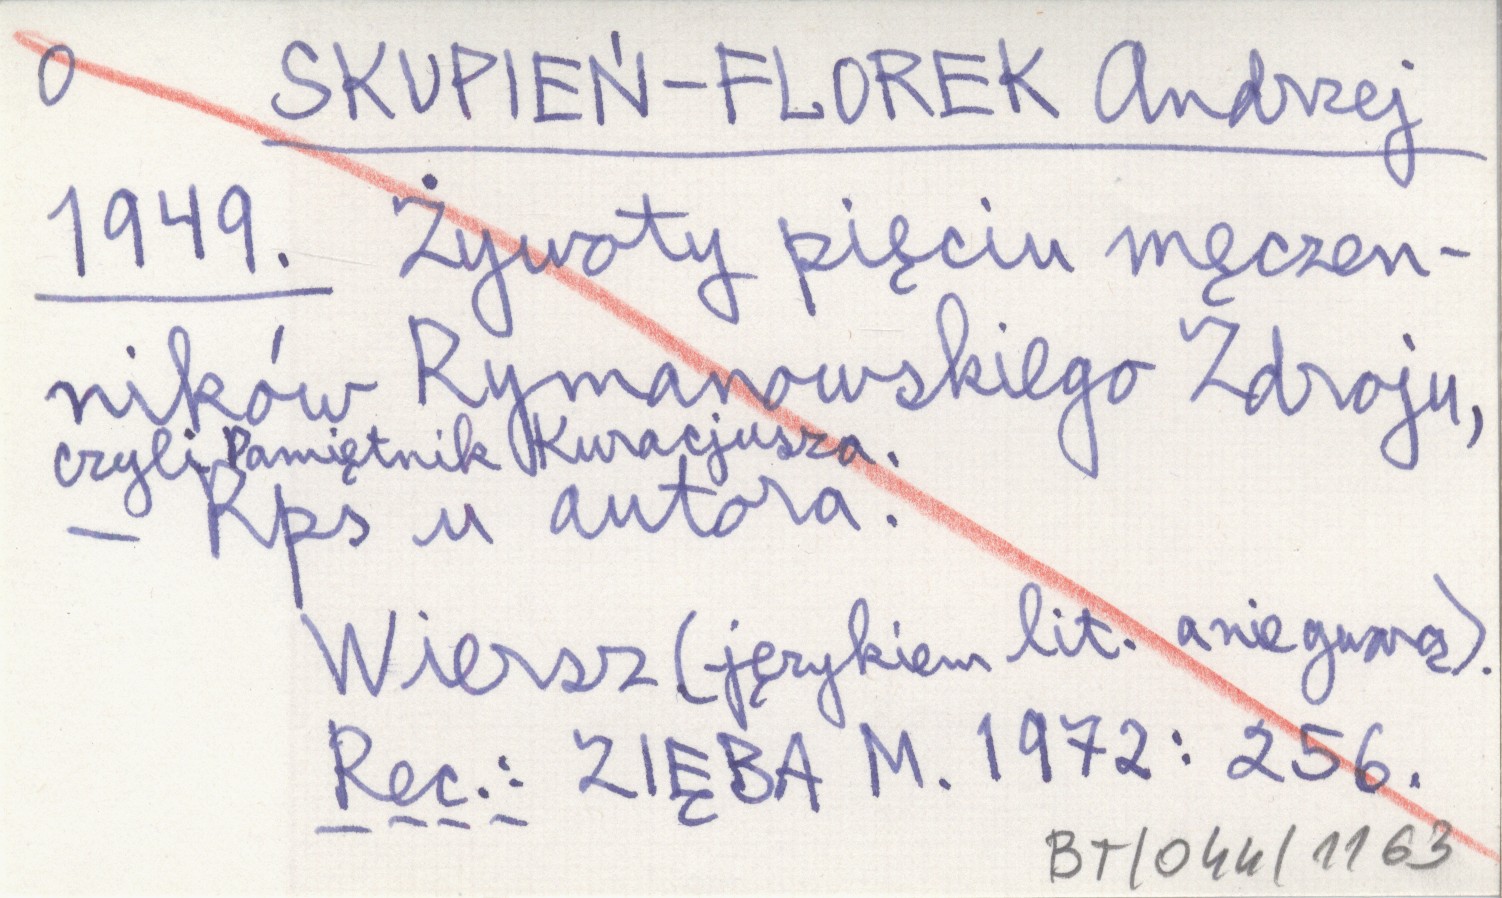 O SKUPIEŃ-FLOREK Andrzej
1949. Żywoty pięciu męczen-
ników Rymanowskiego Zdroju,
czyli Pamiętnik Kuracjusza.
— Rps u autora.
Wiersz (językiem lit. a nie gwarą).
Rec.: ZIĘBA M. 1972: 256.
BT/044/1163